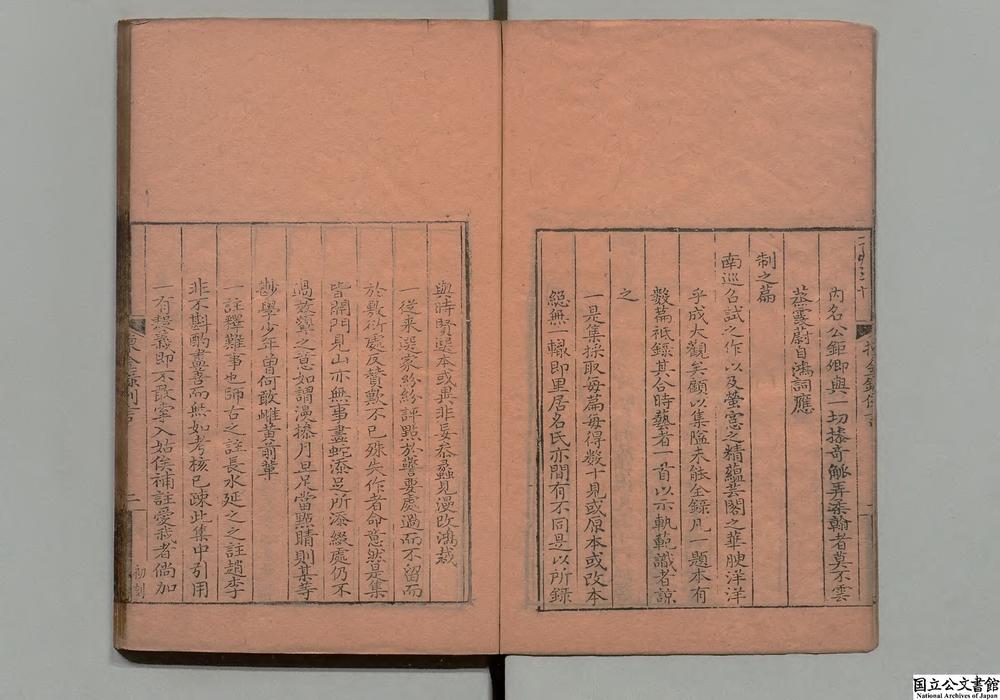 內名公鉅卿與一切搽奇觚弄柔翰者莫不雲
蒸霞蔚自鴻詞應
制之篇
南巡召試之作以及螢窓之精蘊芸閣之華腴洋洋
乎成大觀矣顧以集隘未能全錄凡一題本有
數篇祗錄其合時藝者一首以示軌軏識者諒
之
一是集採取每篇每得數十見或原本或改本
絕無一轍即里居名氏亦間有不同是以所錄
與時賢選本或異非妄叅蠡見漫改鴻裁
一從來選家紛紛評點於警要處過而不留而
於敷衍處反賛歎不已殊失作者命意然是集
皆開門見山亦無事畫蛇添足所添綴處仍不
過蒸鬱之意如謂漫搽月旦足當點睛則某等
尠學少年曾何敢雌黃前輩
一註釋難事也師古之註長水延之之註趙李
非不斟酌盡善而無如考核已疎此集中引用
一有疑義即不敢竄入姑俟補註愛我者倘加
二
初刻
国立公文書館
National Archives of Japan